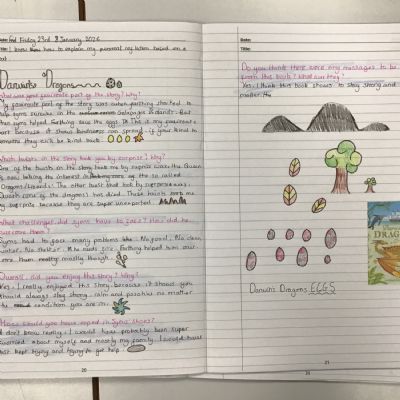 Date: Friday 23rd January 2026
Title: I know how to explain my personal opinion based on a
text
Darwin's Dragons
What was your favourite part of the story? Why?
My favourite part of the story was when farthing started to
help syms survive in the Galapagos islands. But
then syms helped farthing save the eggs. This is my favourite
part because it shows kindness can spread. if your kind to
someone they will be kind back.
Which twists in the story took you by surprise? Why?
One of the twists in the story took me by surprise was the Queen
taking the interest in the so called
Dragons/Lizards. The other twist that took by surprise was
Queen (one of the dragons) has died. These twists took me
by surprise because they are super unexpected.
What challenges did syms have to face? How did he
overcome them?
Syms had to face many problems like: No food, No clean
water, No shelter. Farthing helped him over-
come them mostly though.
Overall, did you enjoy this story? Why?
Yes, I really enjoyed this story because it shows you
should always stay strong, calm and positive no matter
the condition you are in.
How would you have coped in Syms shoes?
I don't know really, I would have probably been super
worried about myself and mostly my family. I would have
just kept trying and trying to get help.
20
Date:
Title:
Do you think there were any messages to be
from this book? What are they?
Yes, I think this book shows to stay strong and
matter the
Darwin's Dragons EGGS
DRAG
21